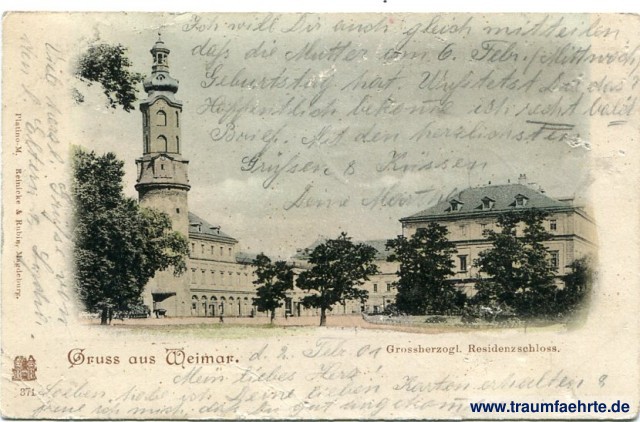 Ich will Dir auch gleich mitteilen
daß die Mutter am 6. Febr. (Mittwoch)
Geburtstag hat. das?
Hoffentlich bekomme ich recht bald
Brief. Mit den herzlichsten
Grüßen & Küssen
Deine
Viel
von
Platino-M. Reinicke & Rubin, Magdeburg.
Gruss aus Weimar.
Grossherzogl. Residenzschloss.
d. 2 Febr 01
Mein liebes Herz!
Soeben habe ich Deine lieben Karten erhalten &
freue ich mich daß Du gut angekommen
371.
www.traumfaehrte.de